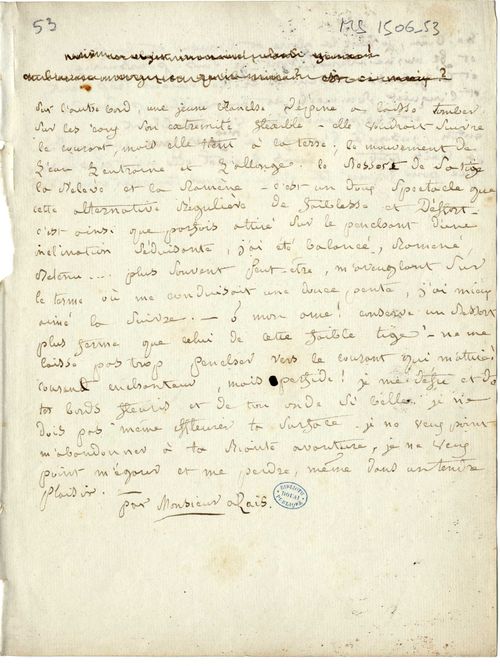 53
MS 1506-53
Sur l'autre bord, une jeune branche d'épine a laissé tomber
Sur les eaux son extrémité flexible - elle voudrait suivre
le courant, mais elle tient à la terre; le mouvement de
l'eau l'entraine et l'allonge. le Ressort de sa tige
la Releve et la Ramène - c'est un doux Spectacle que
cette alternative Régulière de faiblesse et d'effort -
c'est ainsi que parfois attiré sur le penchant d'une
inclination Séduisante, j'ai été balancé, Ramené,
Retenu.... plus souvent peut-être, m'aveuglant sur
le terme où me conduisait une douce pente, j'ai mieux
aimé la suivre. - ô mon ame! conserve un Ressort
plus ferme que celui de cette faible tige! - ne me
laisse pas trop pencher vers le courant qui m'attire!
courant enchanteur, mais perfide! je me défie et de
tes bords fleuris et de ton onde si belle. je ne
dois pas même effleurer ta surface. je ne veux point
m'abandonner à ta Riante avanture, je ne veux
point m'égarer et me perdre, même dans un tendre
plaisir.
par Monsieur